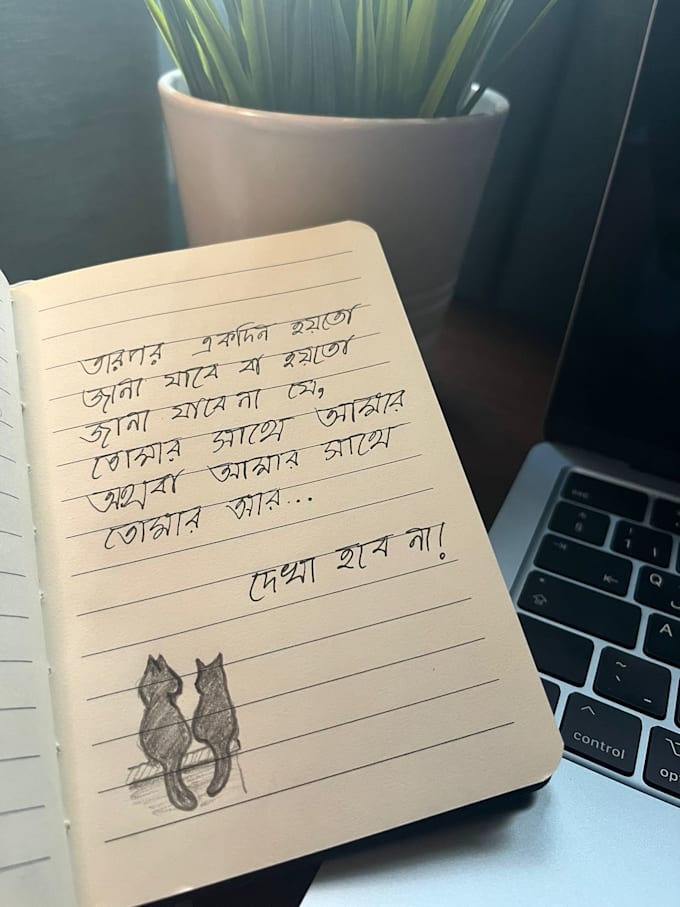 তারপর একদিন হয়তো
জানা যাবে বা হয়তো
জানা যাবে না যে,
তোমার সাথে আমার
অথবা আমার সাথে
তোমার আর...
দেখা হবে না!
esc
§
!
1
Q
A
~
control
opt